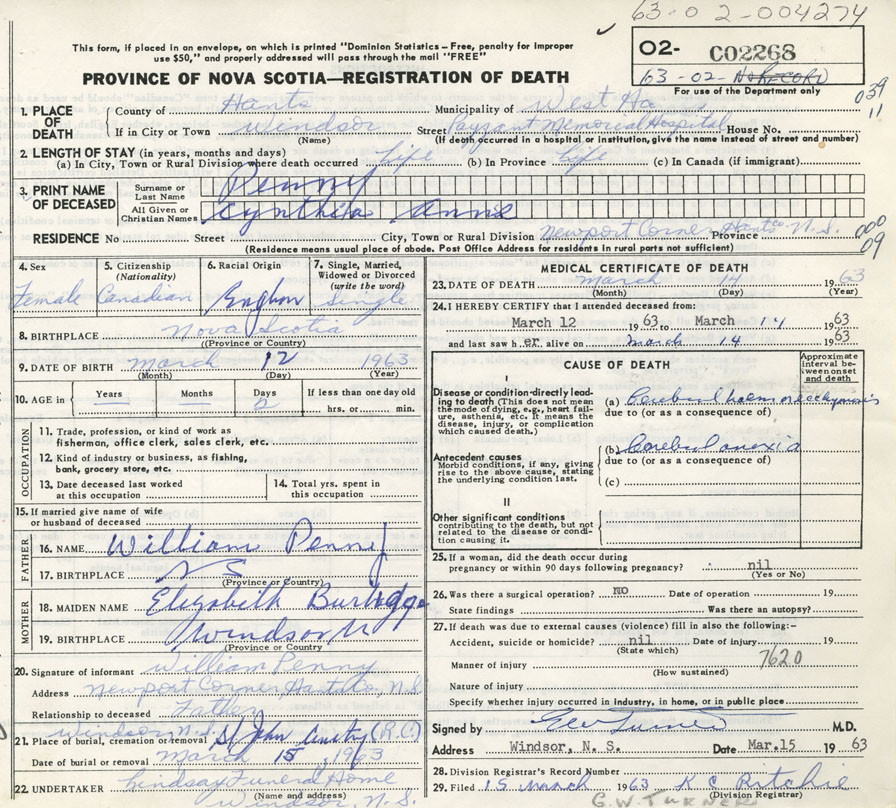 63-02-004274
This form, if placed in an envelope, on which is printed "Dominion Statistics – Free, penalty for improper
use $50," and properly addressed will pass through the mail "FREE"
PROVINCE OF NOVA SCOTIA—REGISTRATION OF DEATH
02- C02268
63-02-
For use of the Department only
039
11
1. PLACE OF DEATH
County of Hants Municipality of West Ha
If in City or Town Windsor Street Payzant Memorial Hospital House No.
(Name) (If death occurred in a hospital or institution, give the name instead of street and number)
2. LENGTH OF STAY (in years, months and days)
(a) In City, Town or Rural Division where death occurred Life (b) In Province Life (c) In Canada (if immigrant)
3. PRINT NAME OF DECEASED
Surname or Last Name Penny
All Given or Christian Names Cynthia Anne
RESIDENCE No Street City, Town or Rural Division Newport Corner Hants Province N.S.
(Residence means usual place of abode. Post Office Address for residents in rural parts not sufficient)
000
09
4. Sex Female
5. Citizenship (Nationality) Canadian
6. Racial Origin English
7. Single, Married, Widowed or Divorced (write the word) Single
8. BIRTHPLACE Nova Scotia
(Province or Country)
9. DATE OF BIRTH March 12 1963
(Month) (Day) (Year)
10. AGE in Years Months Days 2 If less than one day old hrs. or min.
OCCUPATION
11. Trade, profession, or kind of work as
fisherman, office clerk, sales clerk, etc.
12. Kind of industry or business, as fishing,
bank, grocery store, etc.
13. Date deceased last worked at this occupation
14. Total yrs. spent in this occupation
15. If married give name of wife
or husband of deceased
FATHER
16. NAME William Penny
17. BIRTHPLACE N S
(Province or Country)
MOTHER
18. MAIDEN NAME Elizabeth
19. BIRTHPLACE Windsor N
(Province or Country)
20. Signature of informant William Penny
Address Newport Corner Hants Co, N.S.
Relationship to deceased Father
21. Place of burial, cremation or removal Windsor N.S. St John (R.C.)
Date of burial or removal March 15, 1963
22. UNDERTAKER Lindsay Funeral Home
(Name and address)
Windsor, N. S.
MEDICAL CERTIFICATE OF DEATH
23. DATE OF DEATH March 14 1963
(Month) (Day) (Year)
24. I HEREBY CERTIFY that I attended deceased from:
March 12 1963 to March 14 1963
and last saw her alive on March 14 1963
CAUSE OF DEATH
Approximate interval between onset and death
I
Disease or condition directly leading to death (This does not mean the mode of dying, e.g., heart failure, asthenia, etc. It means the disease, injury, or complication which caused death.)
(a) Cerebral
due to (or as a consequence of)
Antecedent causes
Morbid conditions, if any, giving rise to the above cause, stating the underlying condition last.
(b) Cerebral anoxia
due to (or as a consequence of)
(c)
II
Other significant conditions contributing to the death, but not related to the disease or condition causing it.
25. If a woman, did the death occur during
pregnancy or within 90 days following pregnancy? nil
(Yes or No)
26. Was there a surgical operation? no Date of operation 19
State findings Was there an autopsy?
27. If death was due to external causes (violence) fill in also the following:–
Accident, suicide or homicide? nil Date of injury 19
(State which)
Manner of injury 7620
(How sustained)
Nature of injury
Specify whether injury occurred in industry, in home, or in public place
Signed by M.D.
Address Windsor, N. S. Date Mar.15 1963
28. Division Registrar's Record Number
29. Filed 15 March 1963 K C Ritchie
(Division Registrar)
G.W. TURNER